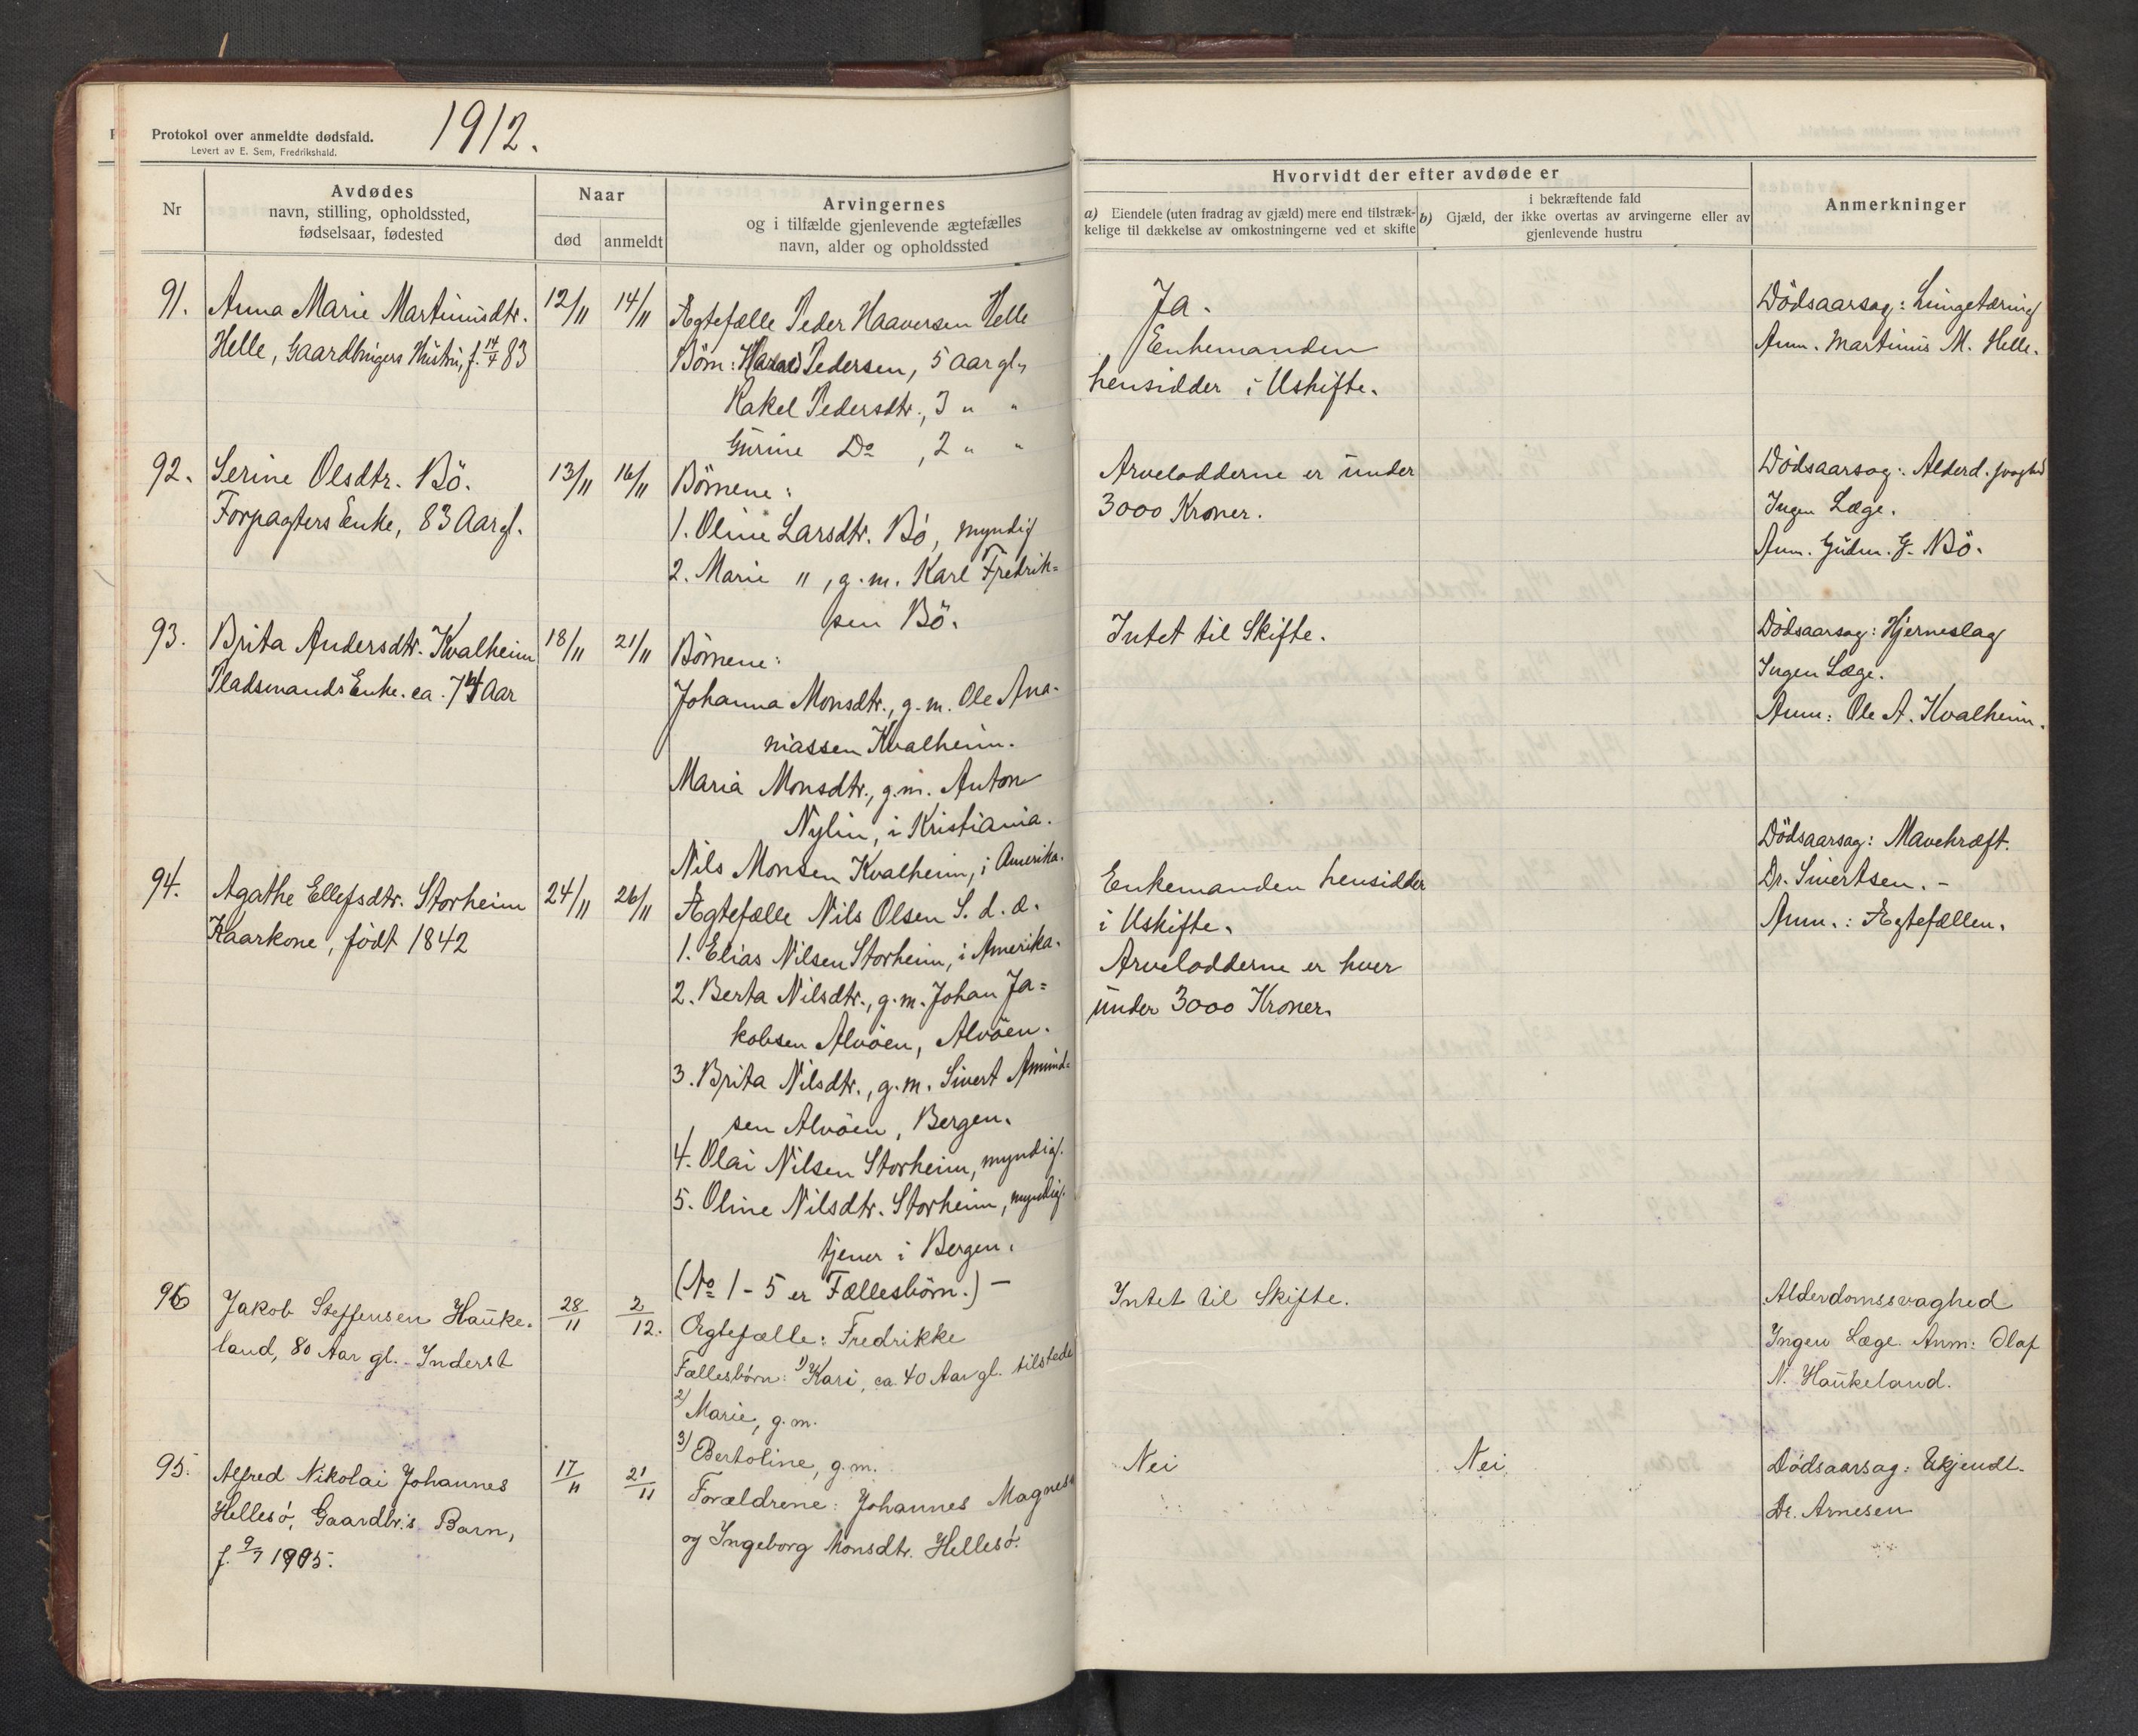 Protokol over anmeldte dødsfald.
Levert av E. Sem, Fredrikshald.
1912.
Nr
Avdødes
navn, stilling, opholdssted,
fødselsaar, fødested
Naar
død
anmeldt
Arvingernes
og i tilfælde gjenlevende ægtefælles
navn, alder og opholdssted
Hvorvidt der efter avdøde er
a) Eiendele (uten fradrag av gjæld) mere end tilstræk-
kelige til dækkelse av omkostningerne ved et skifte
i bekræftende fald
b) Gjæld, der ikke overtas av arvingerne eller av
gjenlevende hustru
Anmerkninger
91.
Anna Marie Martinusdtr.
Helle, Gaardbrugers Hustru, f. 14/4 83
12/11
14/11
Ægtefælle Peder Haaversen Helle
Börn: Pedersen, 5 Aar gl,
Rakel Pedersdtr., 3 " "
Gurine Do , 2 " "
Ja.
Enkemanden
hensidder i Uskifte.
Dödsaarsag: Lungetæring
Anm. Martinus M. Helle.
92.
Serine Olsdtr. Bö.
Forpagters Enke, 83 Aar gl.
13/11
16/11
Börnene:
1. Oline Larsdtr. Bö, myndig
2. Marie " , g. m. Karl Fredrik=
sen Bö.
Arvelodderne er under
3000 Kroner.
Dödsaarsag: Alderd. svaghed
Ingen Læge.
Anm. Gudm. G. Bö.
93.
Brita Andersdtr. Kvalheim
Pladsmands Enke. ca. 74 Aar
18/11
21/11
Börnene:
Johanna Monsdtr., g. m. Ole Ana-
niassen Kvalheim.
Maria Monsdtr., g. m. Anton
Nylin, i Kristiania.
Nils Monsen Kvalheim, i Amerika.
Intet til Skifte.
Dödsaarsag: Hjerneslag
Ingen Læge.
Anm: Ole A. Kvalheim.
94.
Agathe Ellefsdtr. Storheim
Kaarkone, födt 1842
24/11
26/11
Ægtefælle Nils Olsen S. d. æ.
1. Elias Nilsen Storheim, i Amerika.
2. Berta Nilsdtr., g. m. Johan Ja=
kobsen Alvöen, Alvöen.
3. Brita Nilsdtr., g. m. Sivert Amund=
sen Alvöen, Bergen.
4. Olai Nilsen Storheim, myndig.
5. Oline Nilsdtr. Storheim, myndig.
tjener i Bergen.
(No 1 - 5 er Fællesbörn.) —
Enkemanden hensidder
i Uskifte.
Arvelodderne er hver
under 3000 Kroner.
Dödsaarsag: Mavekræft.
Dr. Sivertsen. -
Anm.: Ægtefællen.
96
Jakob Steffensen Hauke-
land, 80 Aar gl. Inderst
28/11
2/12.
Ægtefælle: Fredrikke
Fællesbörn: 1) Kari, ca. 40 Aar gl. tilstede
2) Marie, g. m.
3) Bertoline, g. m.
Intet til Skifte.
Alderdomssvaghed
Ingen Læge. Anm: Olaf
N. Haukeland.
95.
Alfred Nikolai Johannes
Hellesö, Gaardbr.s Barn,
f. 9/7 1905.
17/11
21/11
Forældrene: Johannes Magnesen
og Ingeborg Monsdtr. Hellesö.
Nei
Nei
Dödsaarsag: Ukjendt.
Dr. Arnesen